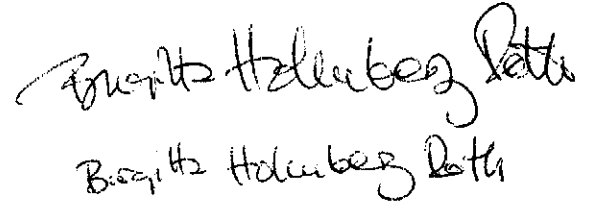 Birgitta Holmberg Roth
Birgitta Holmberg Roth